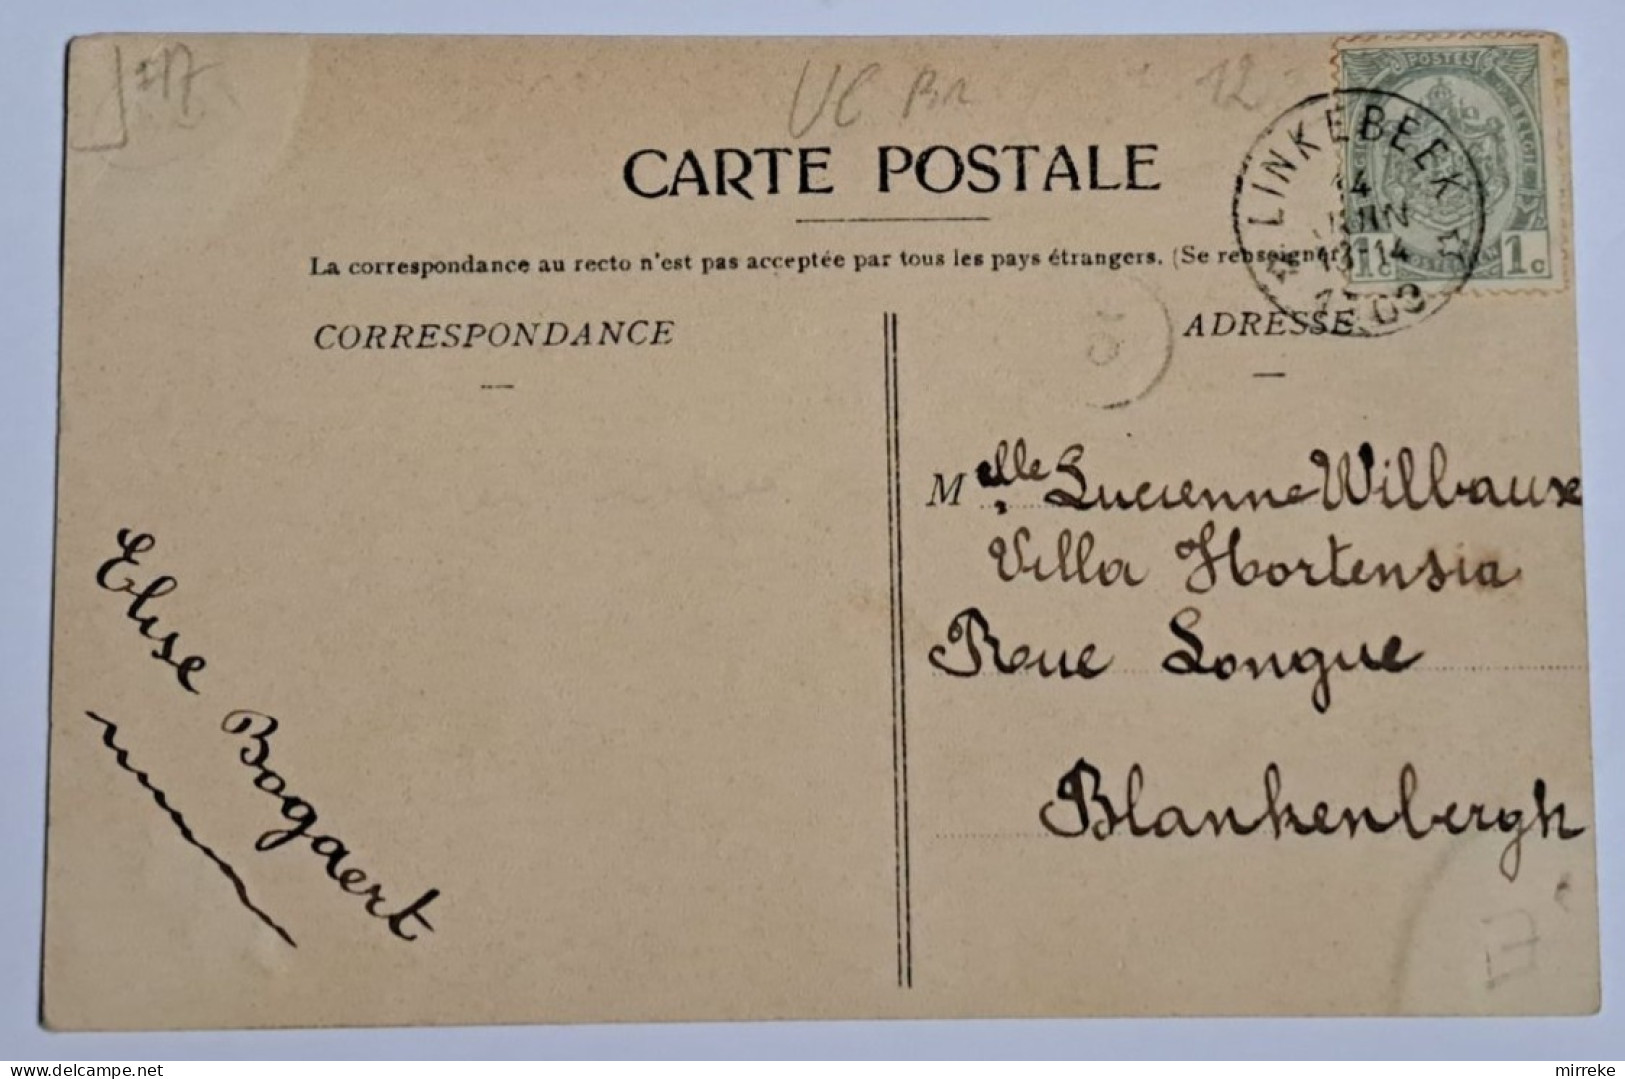 J=17
12
CARTE POSTALE
POSTES
LINKEBEEK
14
JUIN
13-14
1c 1c
La correspondance au recto n'est pas acceptée par tous les pays étrangers. (Se renseigner
CORRESPONDANCE
ADRESSE
Melle Lucienne Wilbaux
Villa Hortensia
Rue Longue
Blankenbergh
Elise Bogaert
mirreke